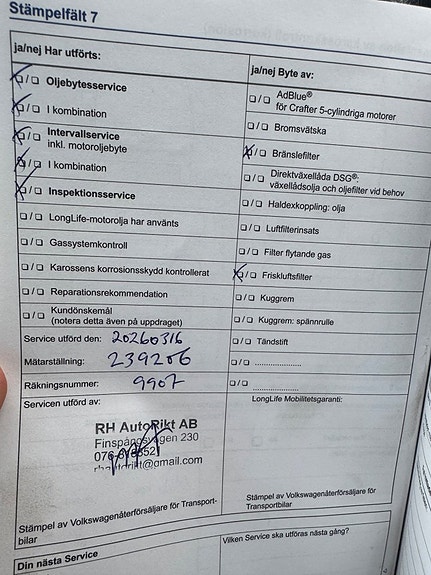 Stämpelfält 7
ja/nej Har utförts:
Oljebytesservice
I kombination
Intervallservice
inkl. motoroljebyte
I kombination
Inspektionsservice
LongLife-motorolja har använts
Gassystemkontroll
Karossens korrosionsskydd kontrollerat
Reparationsrekommendation
Kundönskemål
(notera detta även på uppdraget)
Service utförd den: 20260316
Mätarställning: 239206
Räkningsnummer: 9907
Servicen utförd av:
RH AutoRikt AB
Finspångsvägen 230
Stämpel av Volkswagenåterförsäljare för Transport-
bilar
Din nästa Service
ja/nej Byte av:
AdBlue®
för Crafter 5-cylindriga motorer
Bromsvätska
Bränslefilter
Direktväxellåda DSG®:
växellådsolja och oljefilter vid behov
Haldexkoppling: olja
Luftfilterinsats
Filter flytande gas
Friskluftsfilter
Kuggrem
Kuggrem: spännrulle
Tändstift
LongLife Mobilitetsgaranti:
Stämpel av Volkswagenåterförsäljare för
Transportbilar
Vilken Service ska utföras nästa gång?